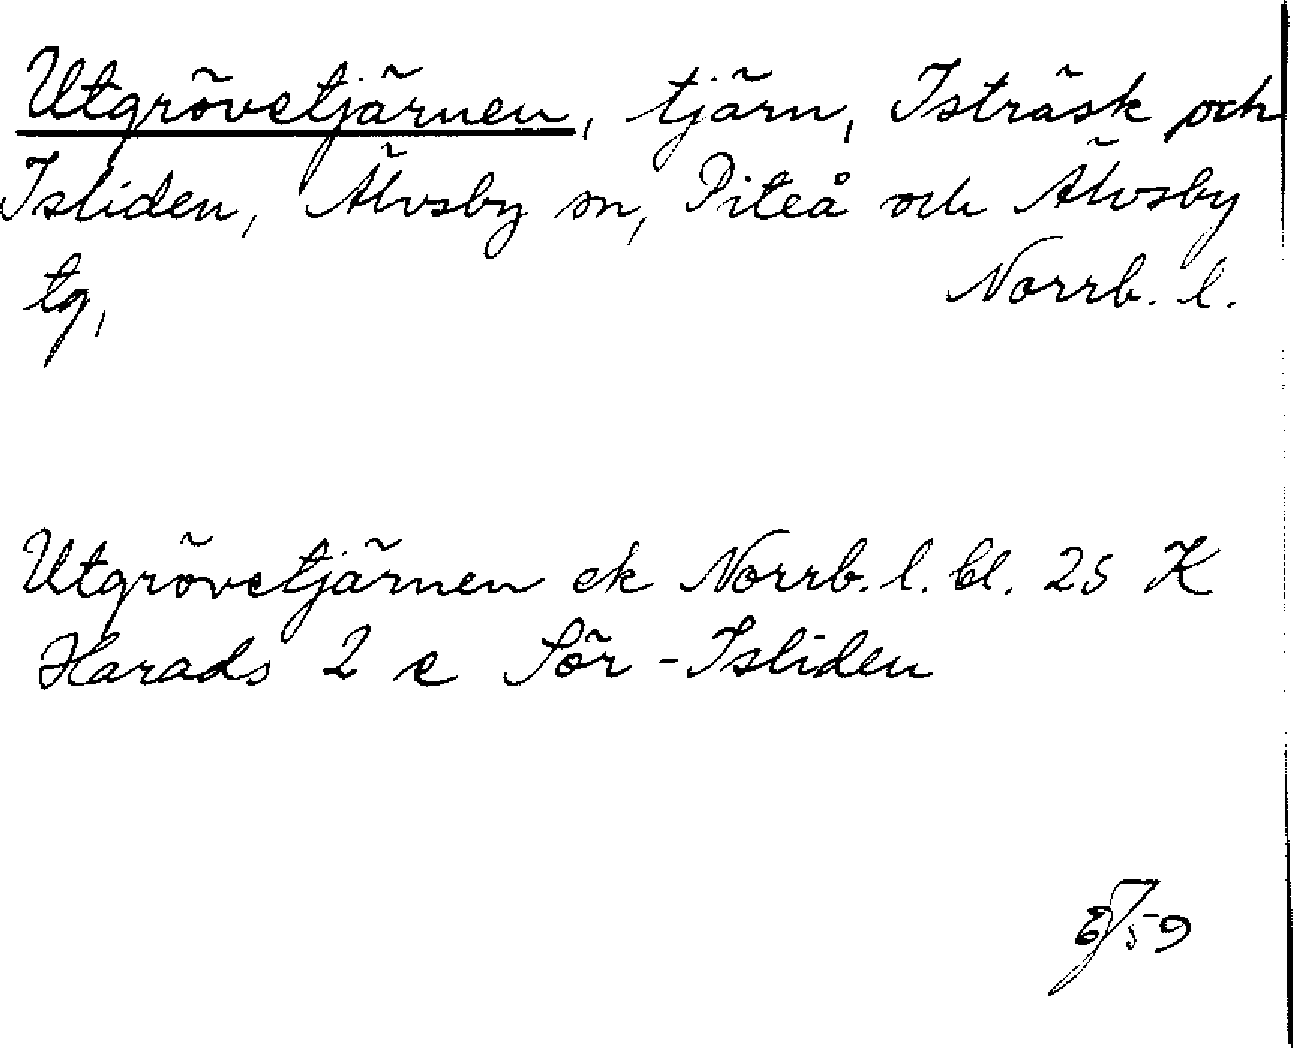 Utgrövetjärnen, tjärn, Isträsk och
Isliden, Älvsby sn, Piteå och Älvsby
tg, Norrb. l.
Utgrövetjärnen ek Norrb. l. bl. 25 K
Harads 2 c Sör-Isliden
59